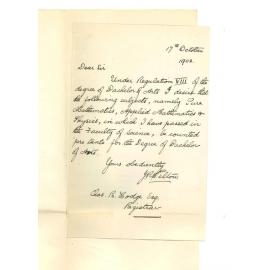 17th October
1902
Dear Sir
Under Regulation VIII of the
degree of Bachelor of Arts I desire that
the following subjects, namely Pure
Mathematics, Applied Mathematics &
Physics, in which I have passed in
the Faculty of Science, be counted
pro tanto for the Degree of Bachelor
of Arts.
Yours Obediently
Chas. R. Hodge Esq.
Registrar